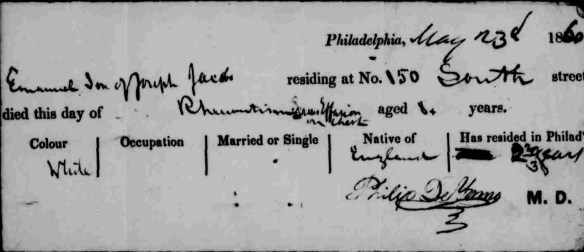 Philadelphia, May 23d 1860
Emanuel Son of Joseph Jacobs residing at No. 150 South street
died this day of Rheumatism Effusion in Chest aged 1. years.
Colour Occupation Married or Single Native of Has resided in Philad
White England 2 years
Philip De Young M. D.